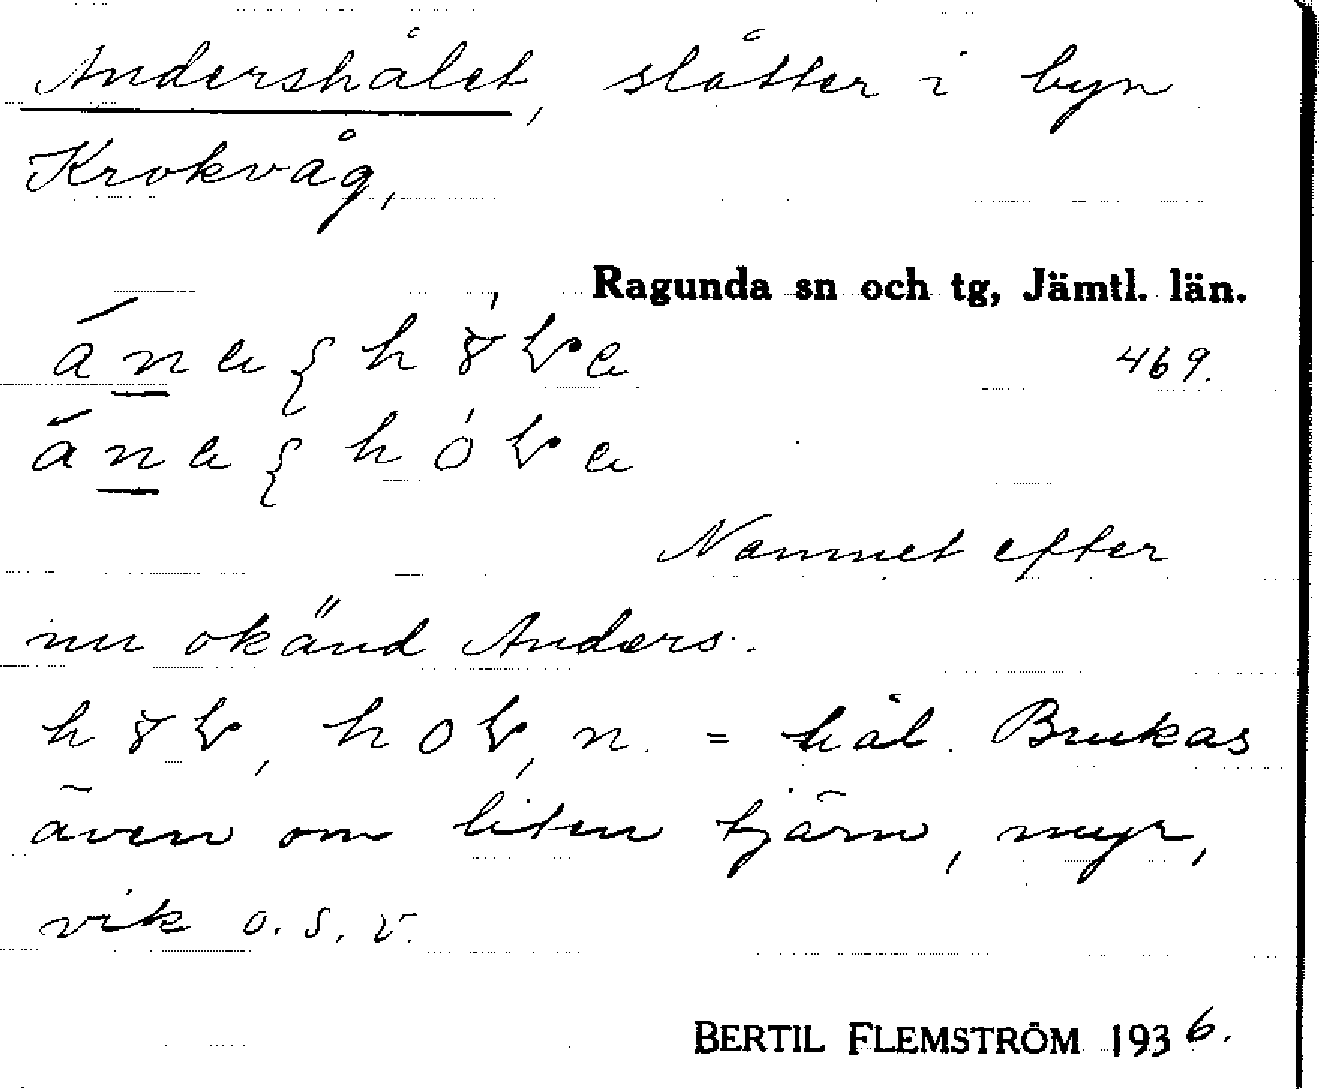 Andershålet, slåtter i byn
Krokvåg,
Ragunda sn och tg, Jämtl. län.
469.
Namnet efter
nu okänd Anders.
n. = hål. Brukas
även om liten tjärn, myr,
vik o.s.v.
BERTIL FLEMSTRÖM 1936.